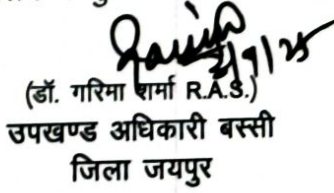 (डॉ. गरिमा शर्मा R.A.S.)
उपखण्ड अधिकारी बस्सी
जिला जयपुर